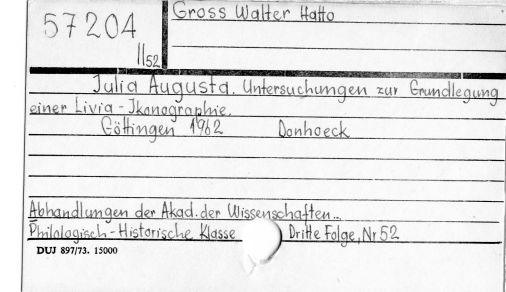 57204
II52
Gross Walter Hatto
Julia Augusta. Untersuchungen zur Grundlegung
einer Livia-Ikonographie.
Göttingen 1962 Donhoeck
Abhandlungen der Akad. der Wissenschaften...
Philologisch-Historische Klasse Dritte Folge, Nr 52
DUJ 897/73. 15000